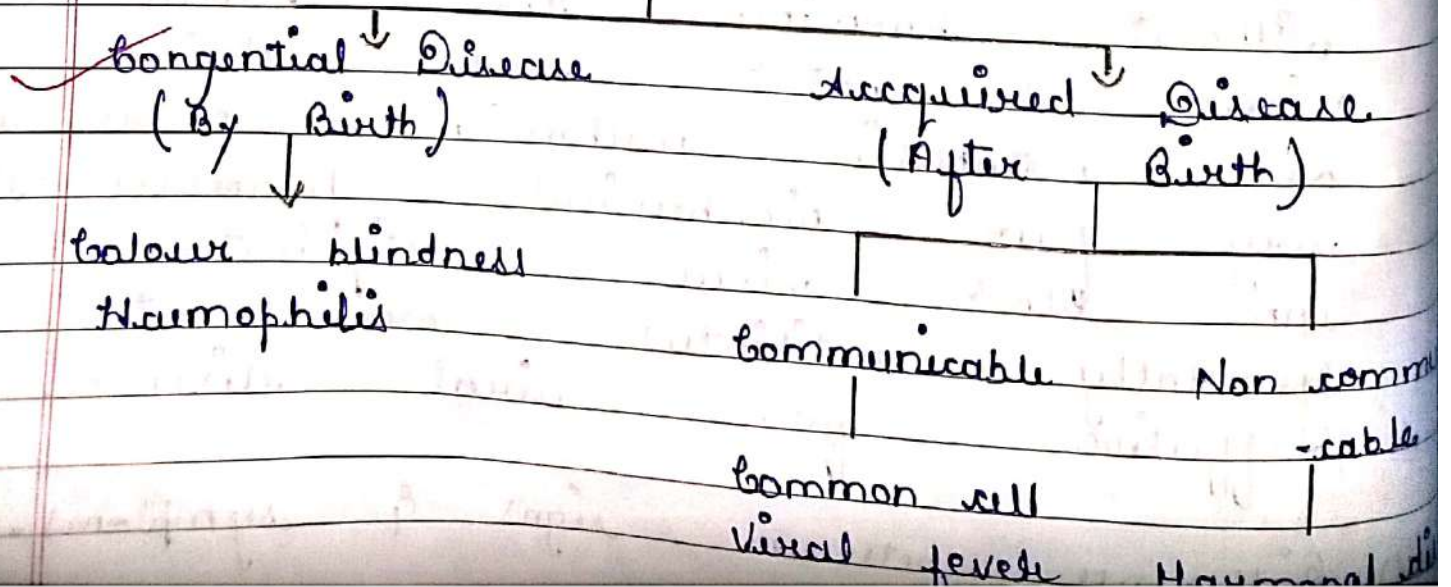 Congential Disease
(By Birth)
Colour blindness
Haemophilis
Accquired Disease
(After Birth)
Communicable
Common cell
Viral fever
Non commu
-cable
Haumonal di